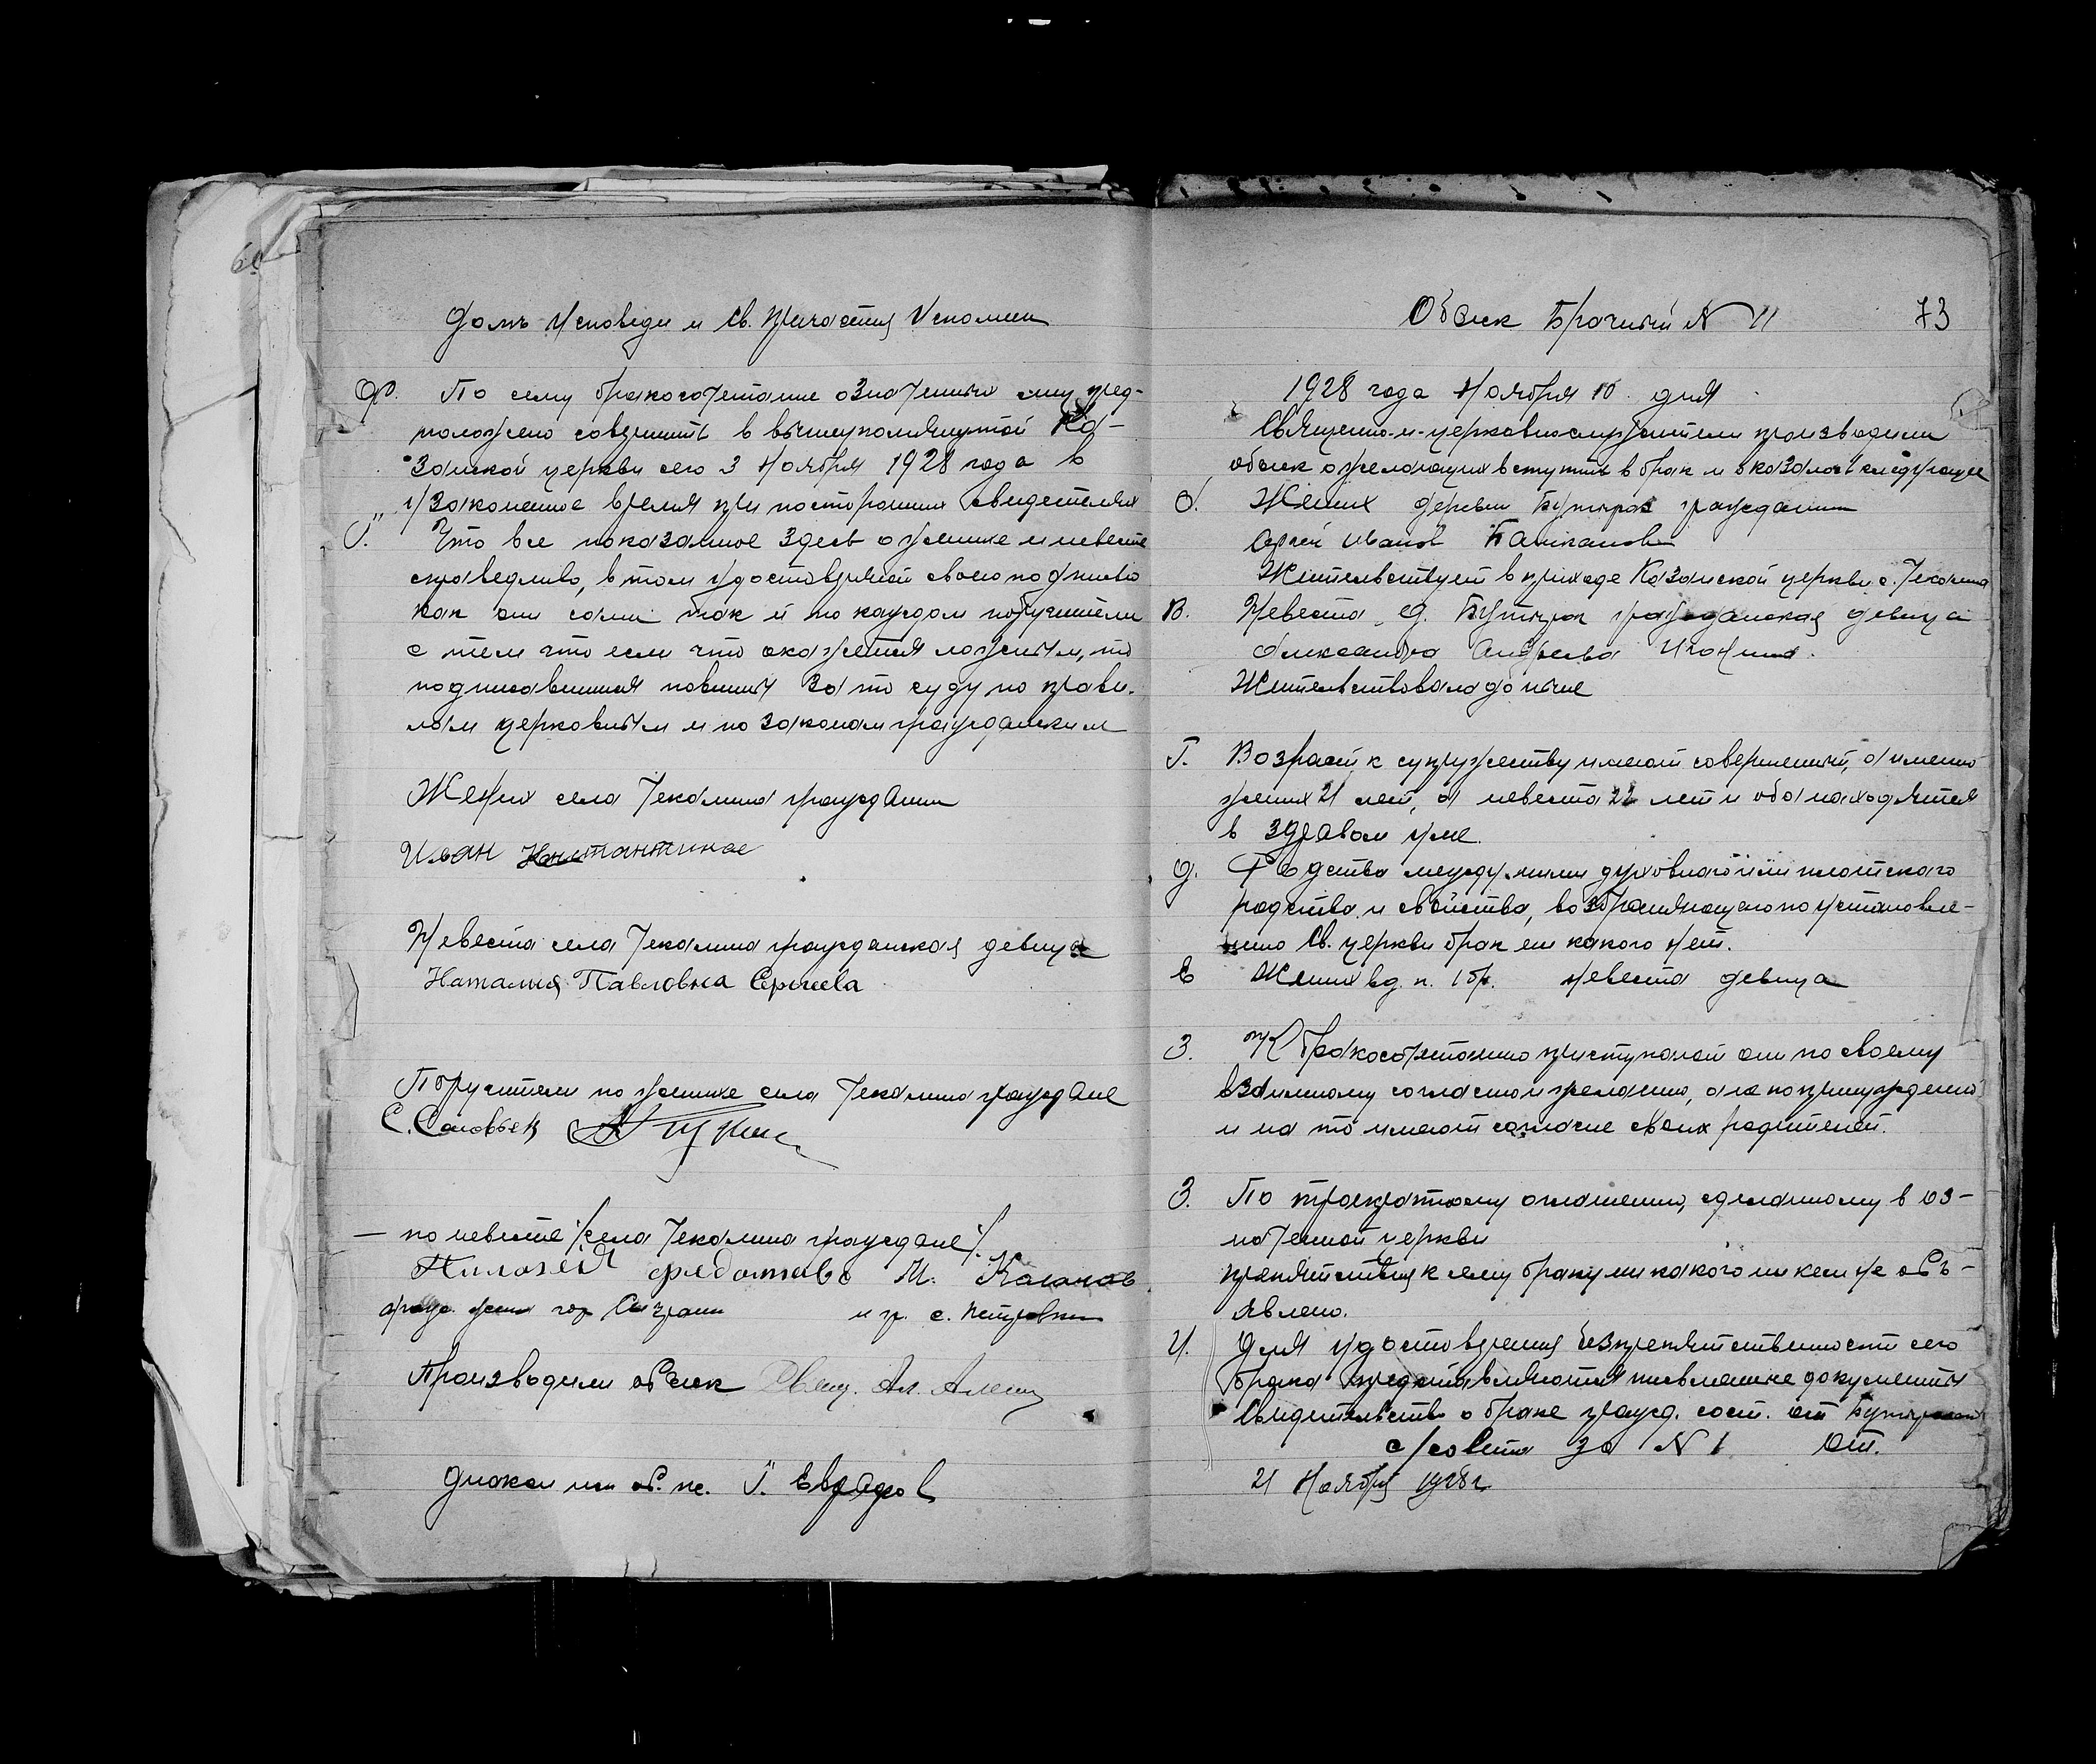 долг исповеди и Св. Причастия исполнили
Ф. По сему бракосочетание означенных лиц пред-
положено совершить в вышеупомянутой Ка-
занской церкви сего 3 Ноября 1928 года в
узаконенное время при посторонних свидетелях
Что все показанное здесь о женихе и невесте
справедливо, в том удостоверяют своею подписью
как они сами так и по каждом поручители
с тем что если что окажется ложным, то
подписавшиеся повинны за то суду по прави-
лам церковным и по законам гражданским
Жених села Чекалина гражданин
Иван
Невеста села Чекалина гражданская девица
Наталия Павловна Сергеева
Поручители по женихе села Чекалина граждане
С. Соловьев
— по невесте /села Чекалина граждане/.
Федотов М. Казаков
гор. Сызрани и гр. с.
Производили обыск Свящ. Ал.
Диакон
Обыск Брачный № 11 73
1928 года Ноября 10 дня
Священно-и-церковнослужители производили
обыск о желающих вступить в брак и оказалось следующее
Жених деревни Бутырок гражданин
Сергей Иванов
Жительствует в приходе Казанской церкви с. Чекалина
В. Невеста д. Бутырок гражданская девица
Александра Андреева
Жительствовала доныне
Г. Возраст к супружеству имеют совершенный, а именно
жених 21 лет, а невеста 22 лет и оба находятся
в здравом уме.
Д. Родства между ними духовного или плотского
родства и свойства, возбраняющего по установле-
нию Св. церкви брак никакого нет.
Е Жених вд. п. 1 бр. невеста девица
З. К бракосочетанию приступают они по своему
взаимному согласию и желанию, а не по принуждению
и на то имеют согласие своих родителей.
З. По троекратному оглашению, сделанному в оз-
наченной церкви
препятствия к сему браку никакого никем не объ-
явлено.
И. Для удостоверения безпрепятственности сего
брака представляются письменные документы
Свидетельство о браке гражд. сост. от
с/совета за № 1 от.
21 Ноября 1928 г